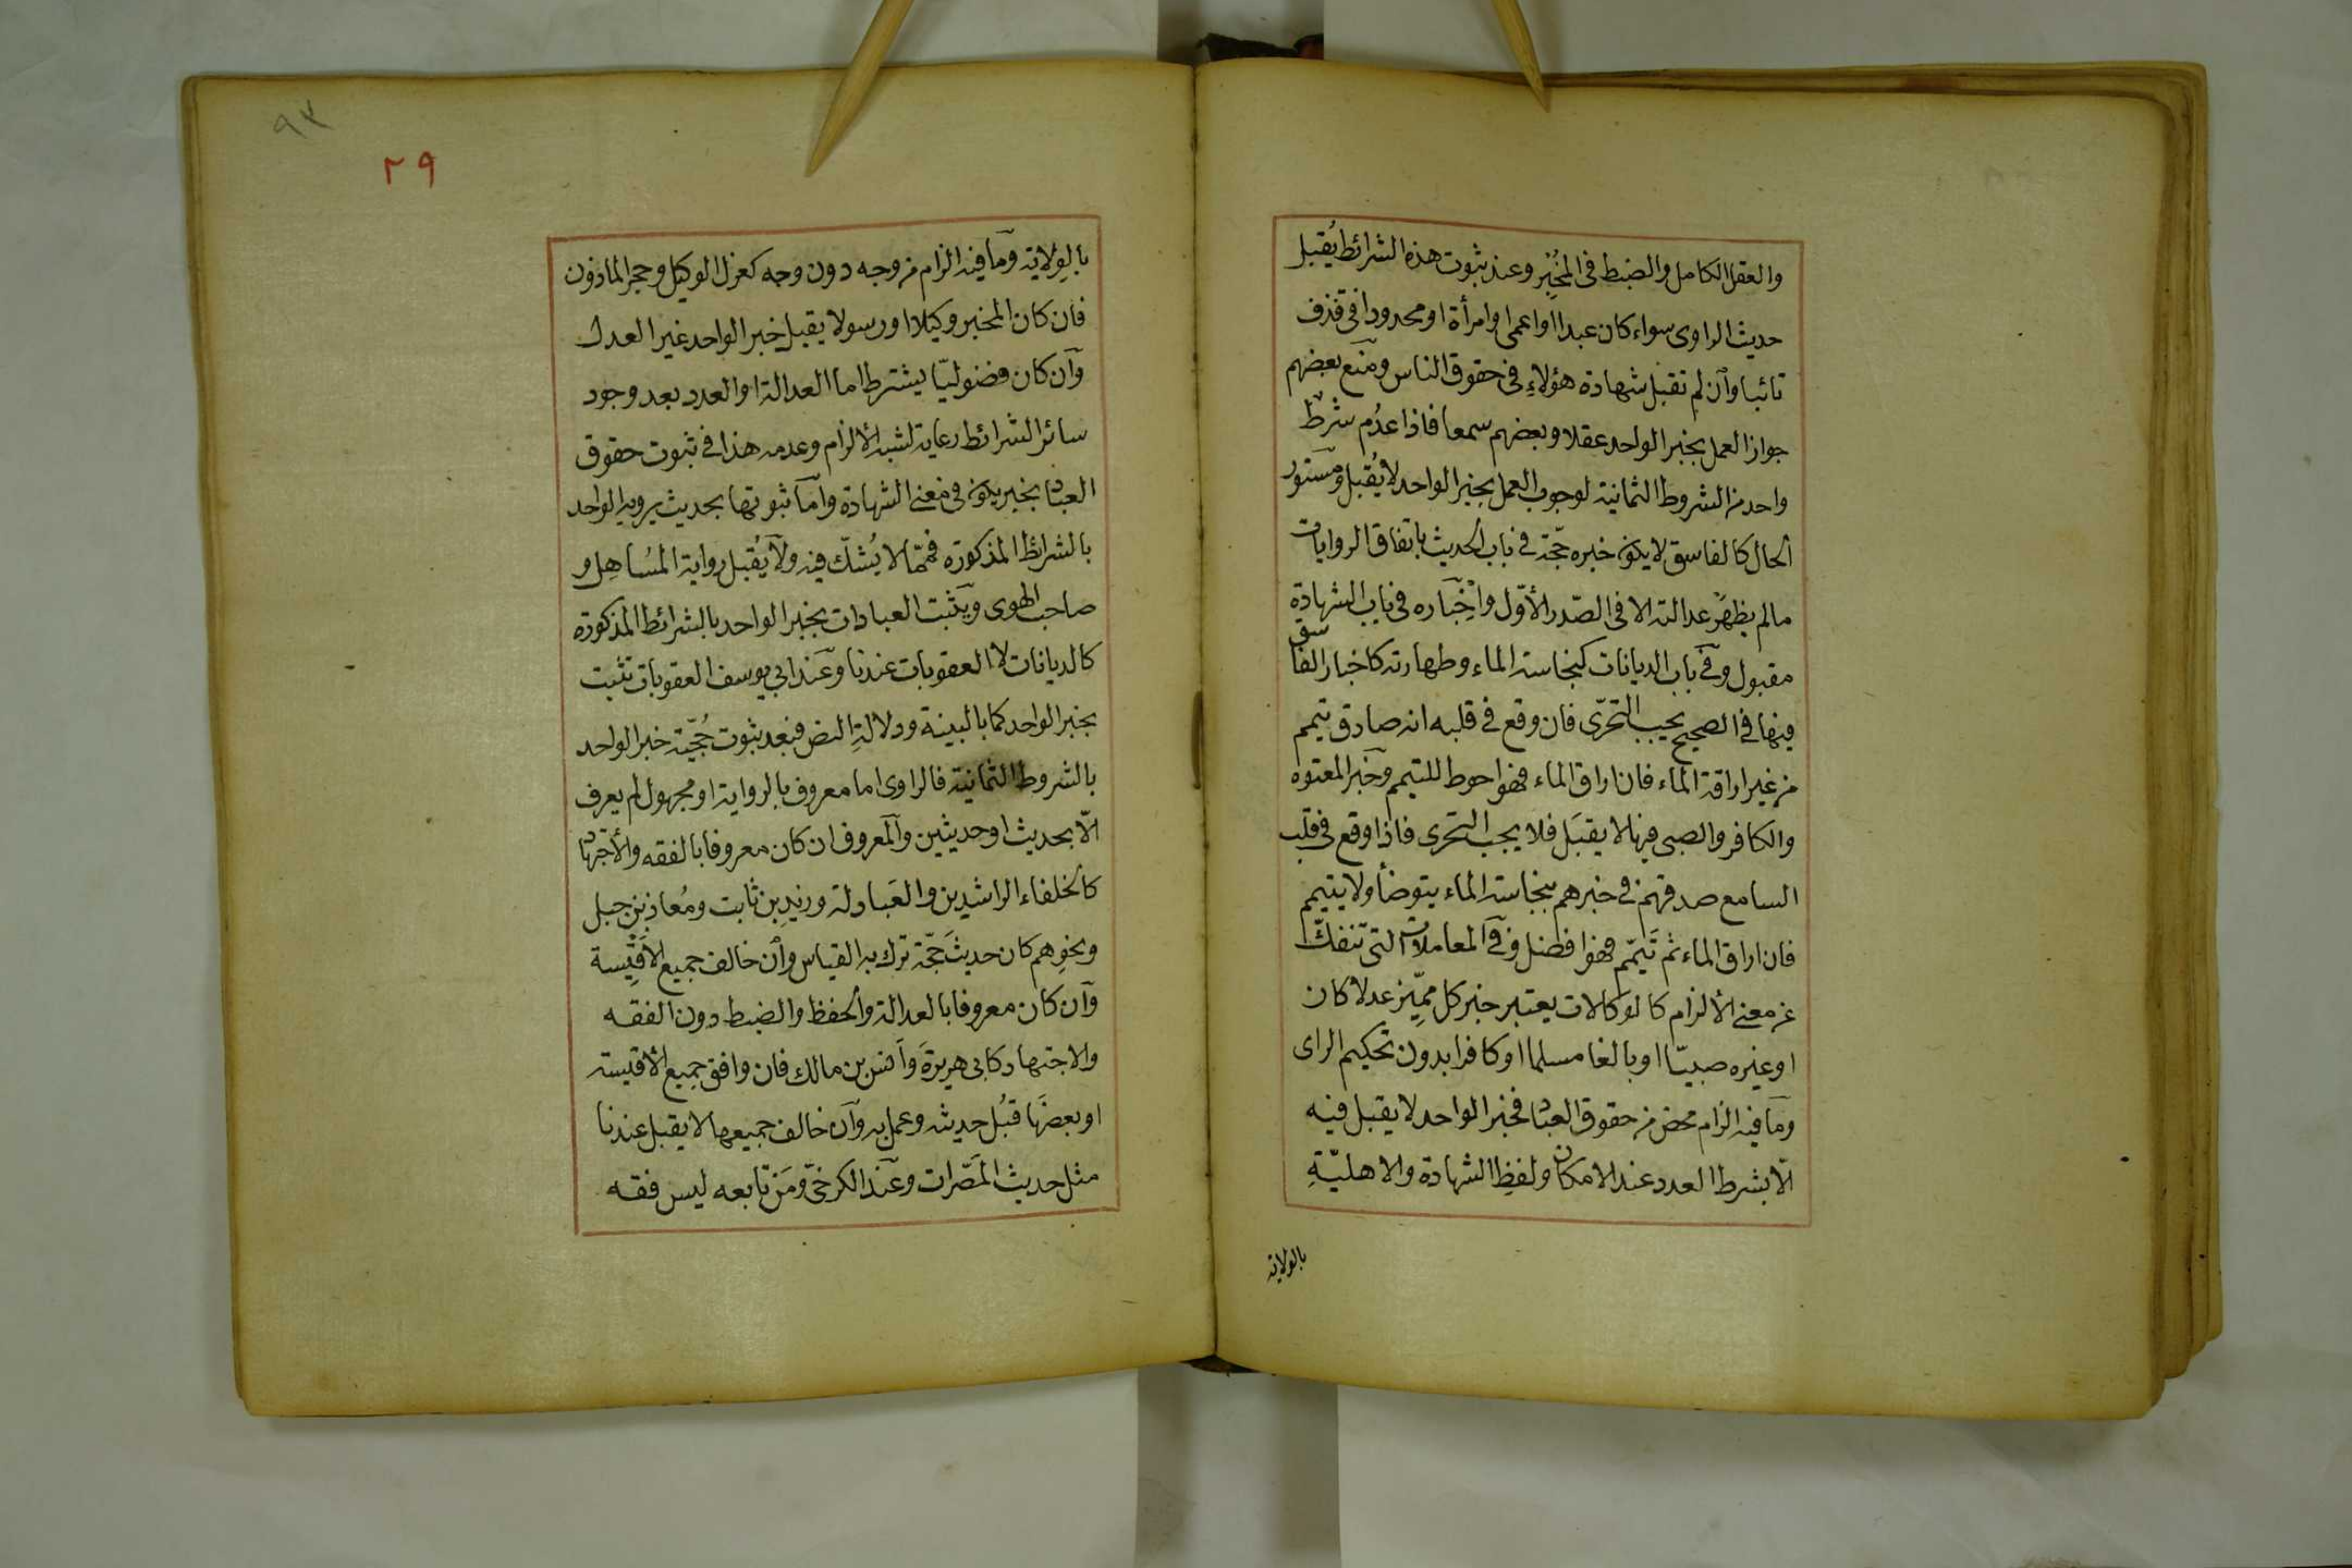 والعقل الكامل والضبط فى المخبِر وعند ثبوت هذه الشرائط يُقبل
حديث الراوى سواء كان عبدا او اعمى او امرأة او محدودا فى قذف
تائبا وان لم تقبل شهادة هؤلاءِ فى حقوق الناس ومنع بعضهم
جواز العمل بخبر الواحد عقلا وبعضهم سمعا فاذا عدُم شرط
واحد من الشروط الثمانية لوجوب العمل بخبر الواحد لا يُقبل ومستور
الحال كالفاسق لا يكون خبره حجّة فى باب الحديث باتفاق الروايات
مالم يظهر عدالته الا فى الصّدر الأوّل واِخْباره فى باب الشهادة
مقبول وفى باب الديانات كنجاسة الماء وطهارته كاخبار الفاسق
فيها فى الصحيح يجب التحرّى فان وقع فى قلبه انه صادق تيمم
من غير اراقة الماء فان اراق الماء فهو احوط للتيمم وخبر المعتوه
والكافر والصبى فيها لا يقبَل فلا يجب التحرى فاذا وقع فى قلب
السامع صدقهم فى خبرهم بنجاسة الماء يتوضأ ولا يتيمم
فان اراق الماء ثم تَيمّم فهو افضل وفى المعاملات التى تنفكّ
عن معنى الألزام كالوكالات يعتبر خبر كل مميّز عدلا كان
او غيره صبيّا او بالغا مسلما او كافرا بدون تحكيم الراى
وما فيه الزام محض من حقوق العباد فخبر الواحد لا يقبل فيه
الّا بشرط العدد عند الامكان ولفظِ الشهادة والاهليّةِ
بالولاية
٩٣
٢٩
بالوِلاية وما فيه الزام من وجه دون وجه كعزل الوكيل وحجر الماذون
فان كان المخبر وكيلا او رسولا يقبل خبر الواحد غير العدل
وان كان فضوليّا يشترط اما العدالة او العدد بعد وجود
سائر الشرائط رعاية لشبه الألزام وعدمه هذا فى ثبوت حقوق
العباد بخبر يكون فى معنى الشهادة واما ثبوتها بحديث يرويه الواحد
بالشرائط المذكورة فممّا لا يُشكّ فيه ولا يُقبل رواية المُساهِل و
صاحب الهوى ويثبت العبادات بخبر الواحد بالشرائط المذكورة
كالديانات لا العقوبات عندنا وعند ابى يوسف العقوبات تثبت
بخبر الواحد كما بالبينة ودلالةِ النص فبعد ثبوت حُجّية خبر الواحد
بالشروط الثمانية فالراوى اما معروف بالرواية او مجهول لم يعرف
الّا بحديث او حديثين والمعروف ان كان معروفا بالفقه والأجتهاد
كالخلفاء الراشدين والعَبادلة وزيدِ بن ثابت ومُعاذ بن جبل
ونحوِهم كان حديثه حجّة ترك به القياس وان خالف جميع الاَقْيِسة
وان كان معروفا بالعدالة والحفظ والضبط دون الفقه
والاجتهاد كابى هريرةَ واَنس بن مالك فان وافق جميع الأقيسة
او بعضَها قُبل حديثه وعمل به وان خالف جميعها لا يقبل عندنا
مثل حديث المَصّرات وعند الكرخىّ ومَن تابعه ليس فقه